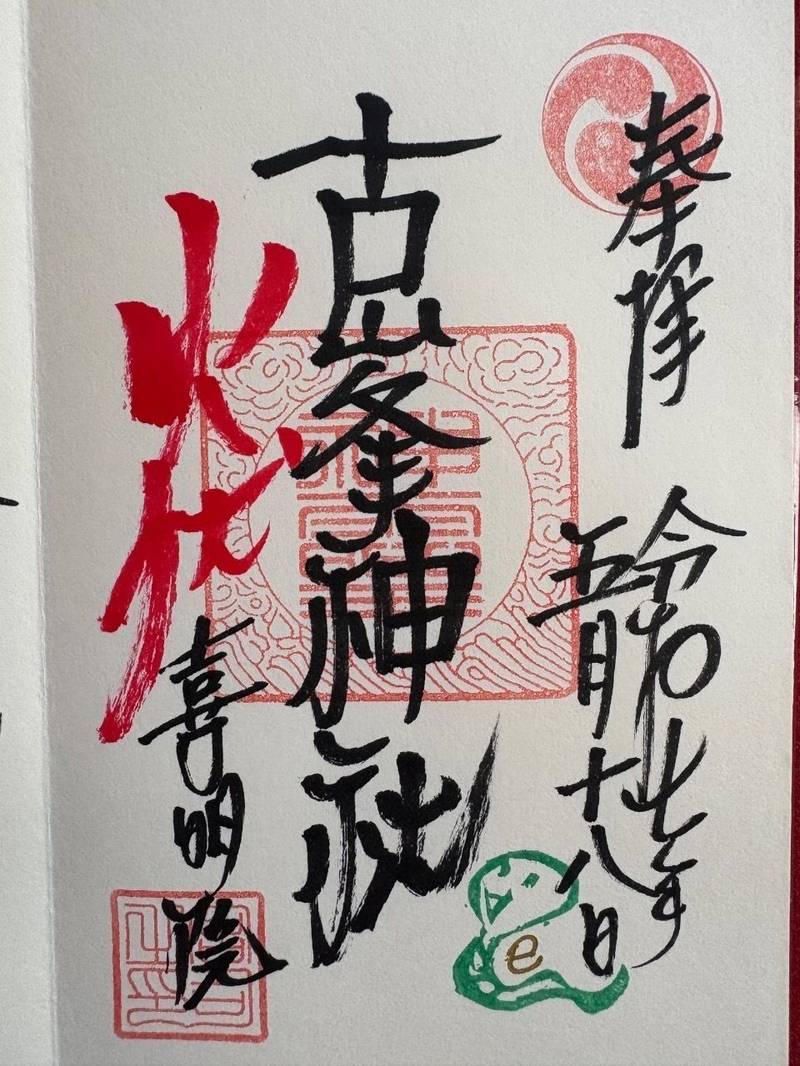 奉拝
令和七年
五月十八日
古峯神社
火伏
喜明院
e